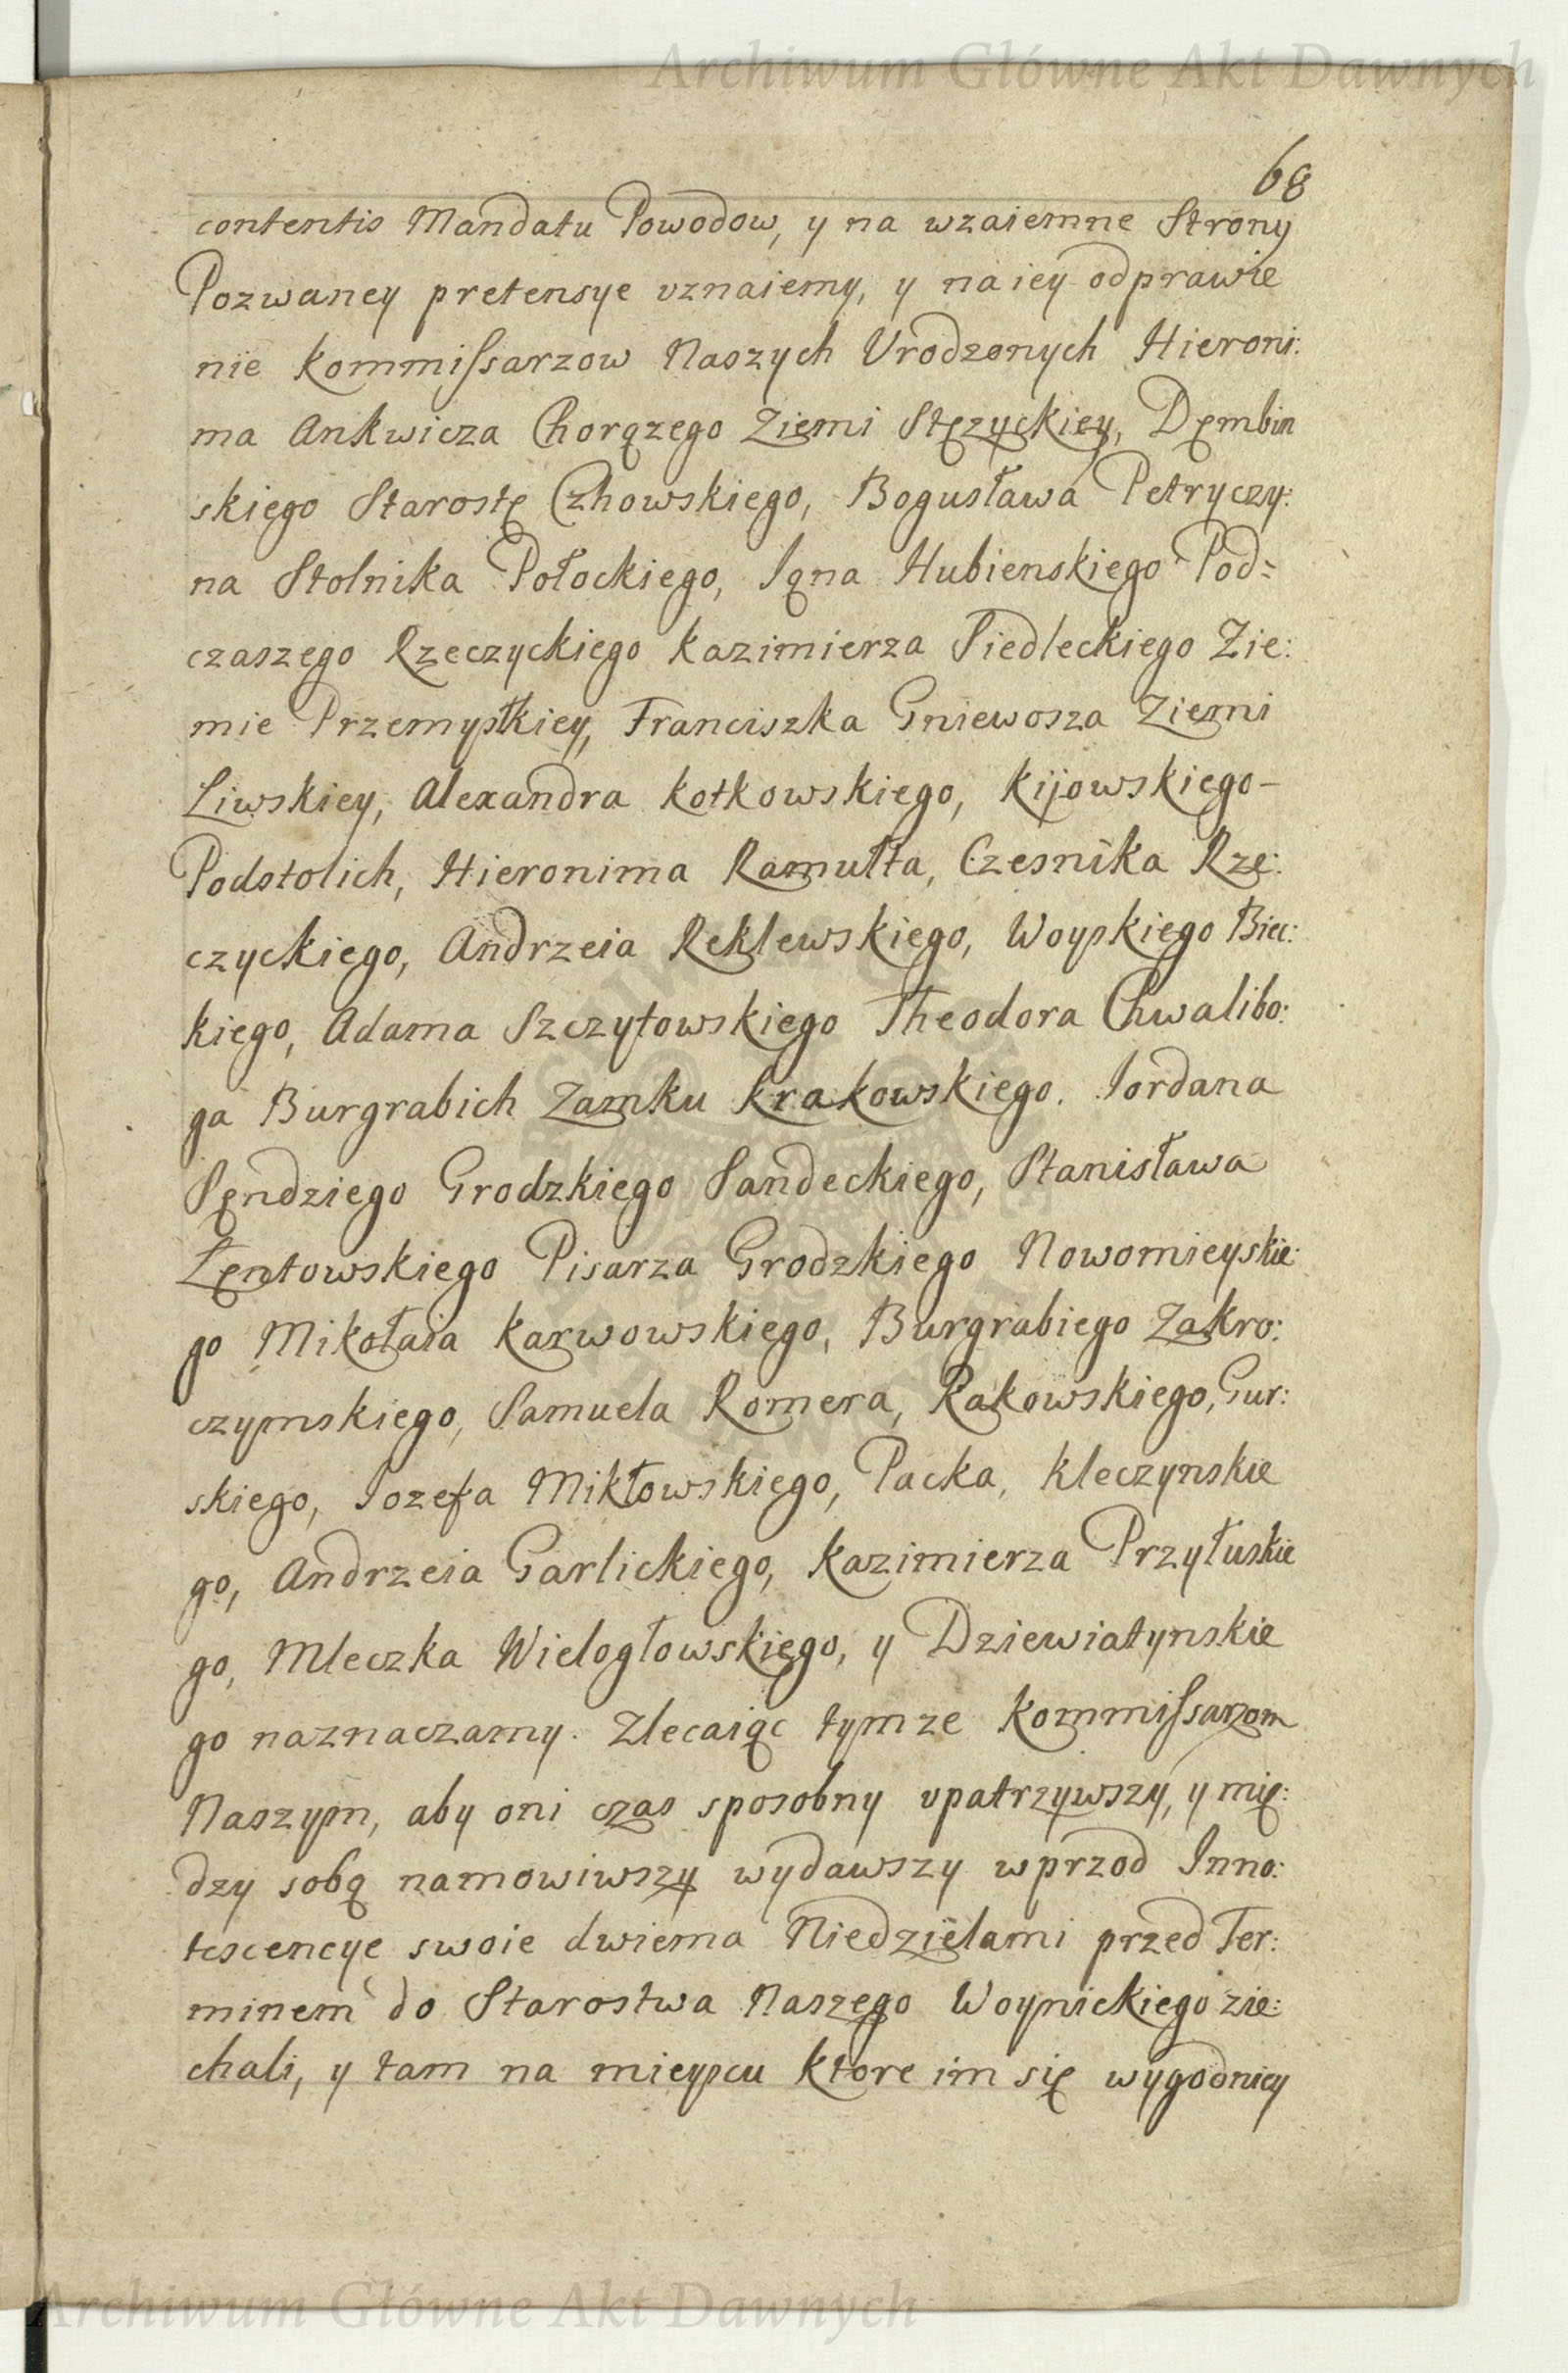 Archiwum Główne Akt Dawnych
68
contentis Mandatu Powodow, y na wzaiemne Strony
Pozwaney pretensye vznaiemy, y na iey odprawie
nie Kommissarzow Naszych Vrodzonych Hieroni:
ma Ankwicza Chorązego Ziemi Stęzyckiey, Dęmbin
skiego Starostę Czhowskiego, Bogusława Petryczy:
na Stolnika Połockiego, Iąna Hubienskiego Pod=
czaszego Rzeczyckiego Kazimierza Siedleckiego Zie:
mie Przemyskiey, Franciszka Gniewosza Ziemi
Liwskiey, Alexandra Kotkowskiego, Kijowskiego-
Podstolich, Hieronima Ramułta, Czesnika Rze:
czyckiego, Andrzeia Reklewskiego, Woyskiego Biec:
kiego, Adama Szczytowskiego Theodora Chwalibo:
ga Burgrabich Zamku Krakowskiego. Iordana
Sęndziego Grodzkiego Sandeckiego, Stanisława
Łętowskiego Pisarza Grodzkiego Nowomieyskie:
go Mikołaia Karwowskiego, Burgrabiego Zakro:
czymskiego, Samuela Romera, Rakowskiego, Gur:
skiego, Iozefa Mikłowskiego, Packa, Kleczynskie
go, Andrzeia Garlickiego, Kazimierza Przyłuskie
go, Mleczka Wielogłowskiego, y Dziewiatynskie
go naznaczamy. Zlecaiąc tymze Kommissarzom
Naszym, aby oni czas sposobny vpatrzywszy, y mię:
dzy sobą namowiwszy wydawszy wprzod Inno:
tescencye swoie dwiema Niedzielami przed Ter:
minem do Starostwa Naszego Woynickiego zie:
chali, y tam na mieyscu ktore im się wygodniey
Archiwum Główne Akt Dawnych